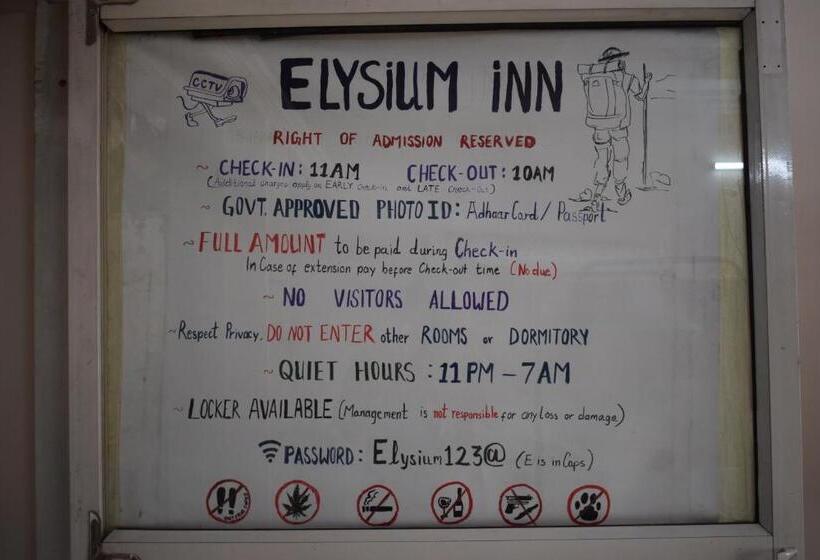 CCTV
ELYSiUM iNN
RIGHT OF ADMISSION RESERVED
~ CHECK-IN: 11AM CHECK-OUT: 10AM
(Additional charges apply on EARLY Check-in and LATE Check-Out)
~ GOVT. APPROVED PHOTO ID: Adhaar Card / Passport
~ FULL AMOUNT to be paid during Check-in
In Case of extension pay before Check-out time (No due)
~ NO VISITORS ALLOWED
~ Respect Privacy. DO NOT ENTER other ROOMS or DORMITORY
~ QUIET HOURS : 11 PM – 7 AM
~ LOCKER AVAILABLE (Management is not responsible for any loss or damage)
PASSWORD: Elysium123@ (E is in Caps)